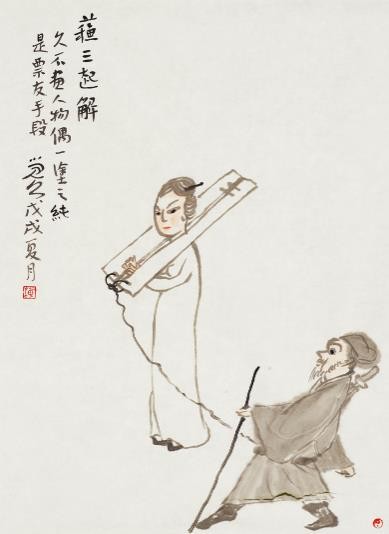 蘓三起解
久不畫人物偶一塗之純
是票友手段
戊戌夏月